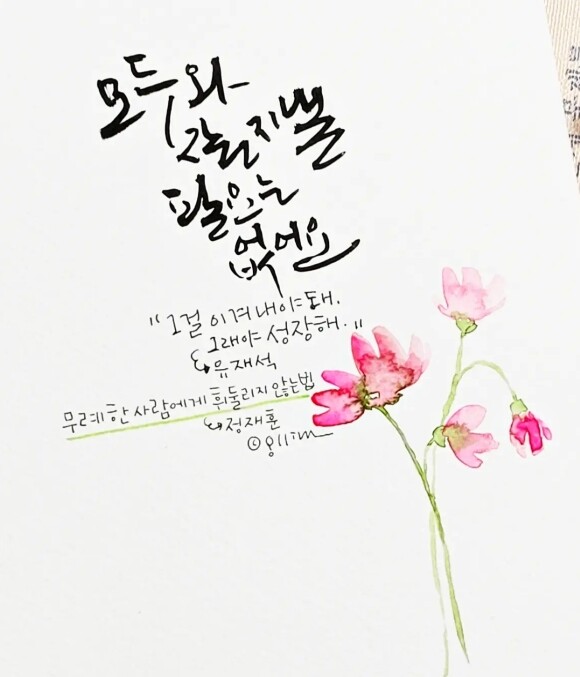 모두와
잘 지낼
필요는
없어요
"그걸 이겨내야 돼.
그래야 성장해."
유재석
무례한 사람에게 휘둘리지 않는 법
정재훈